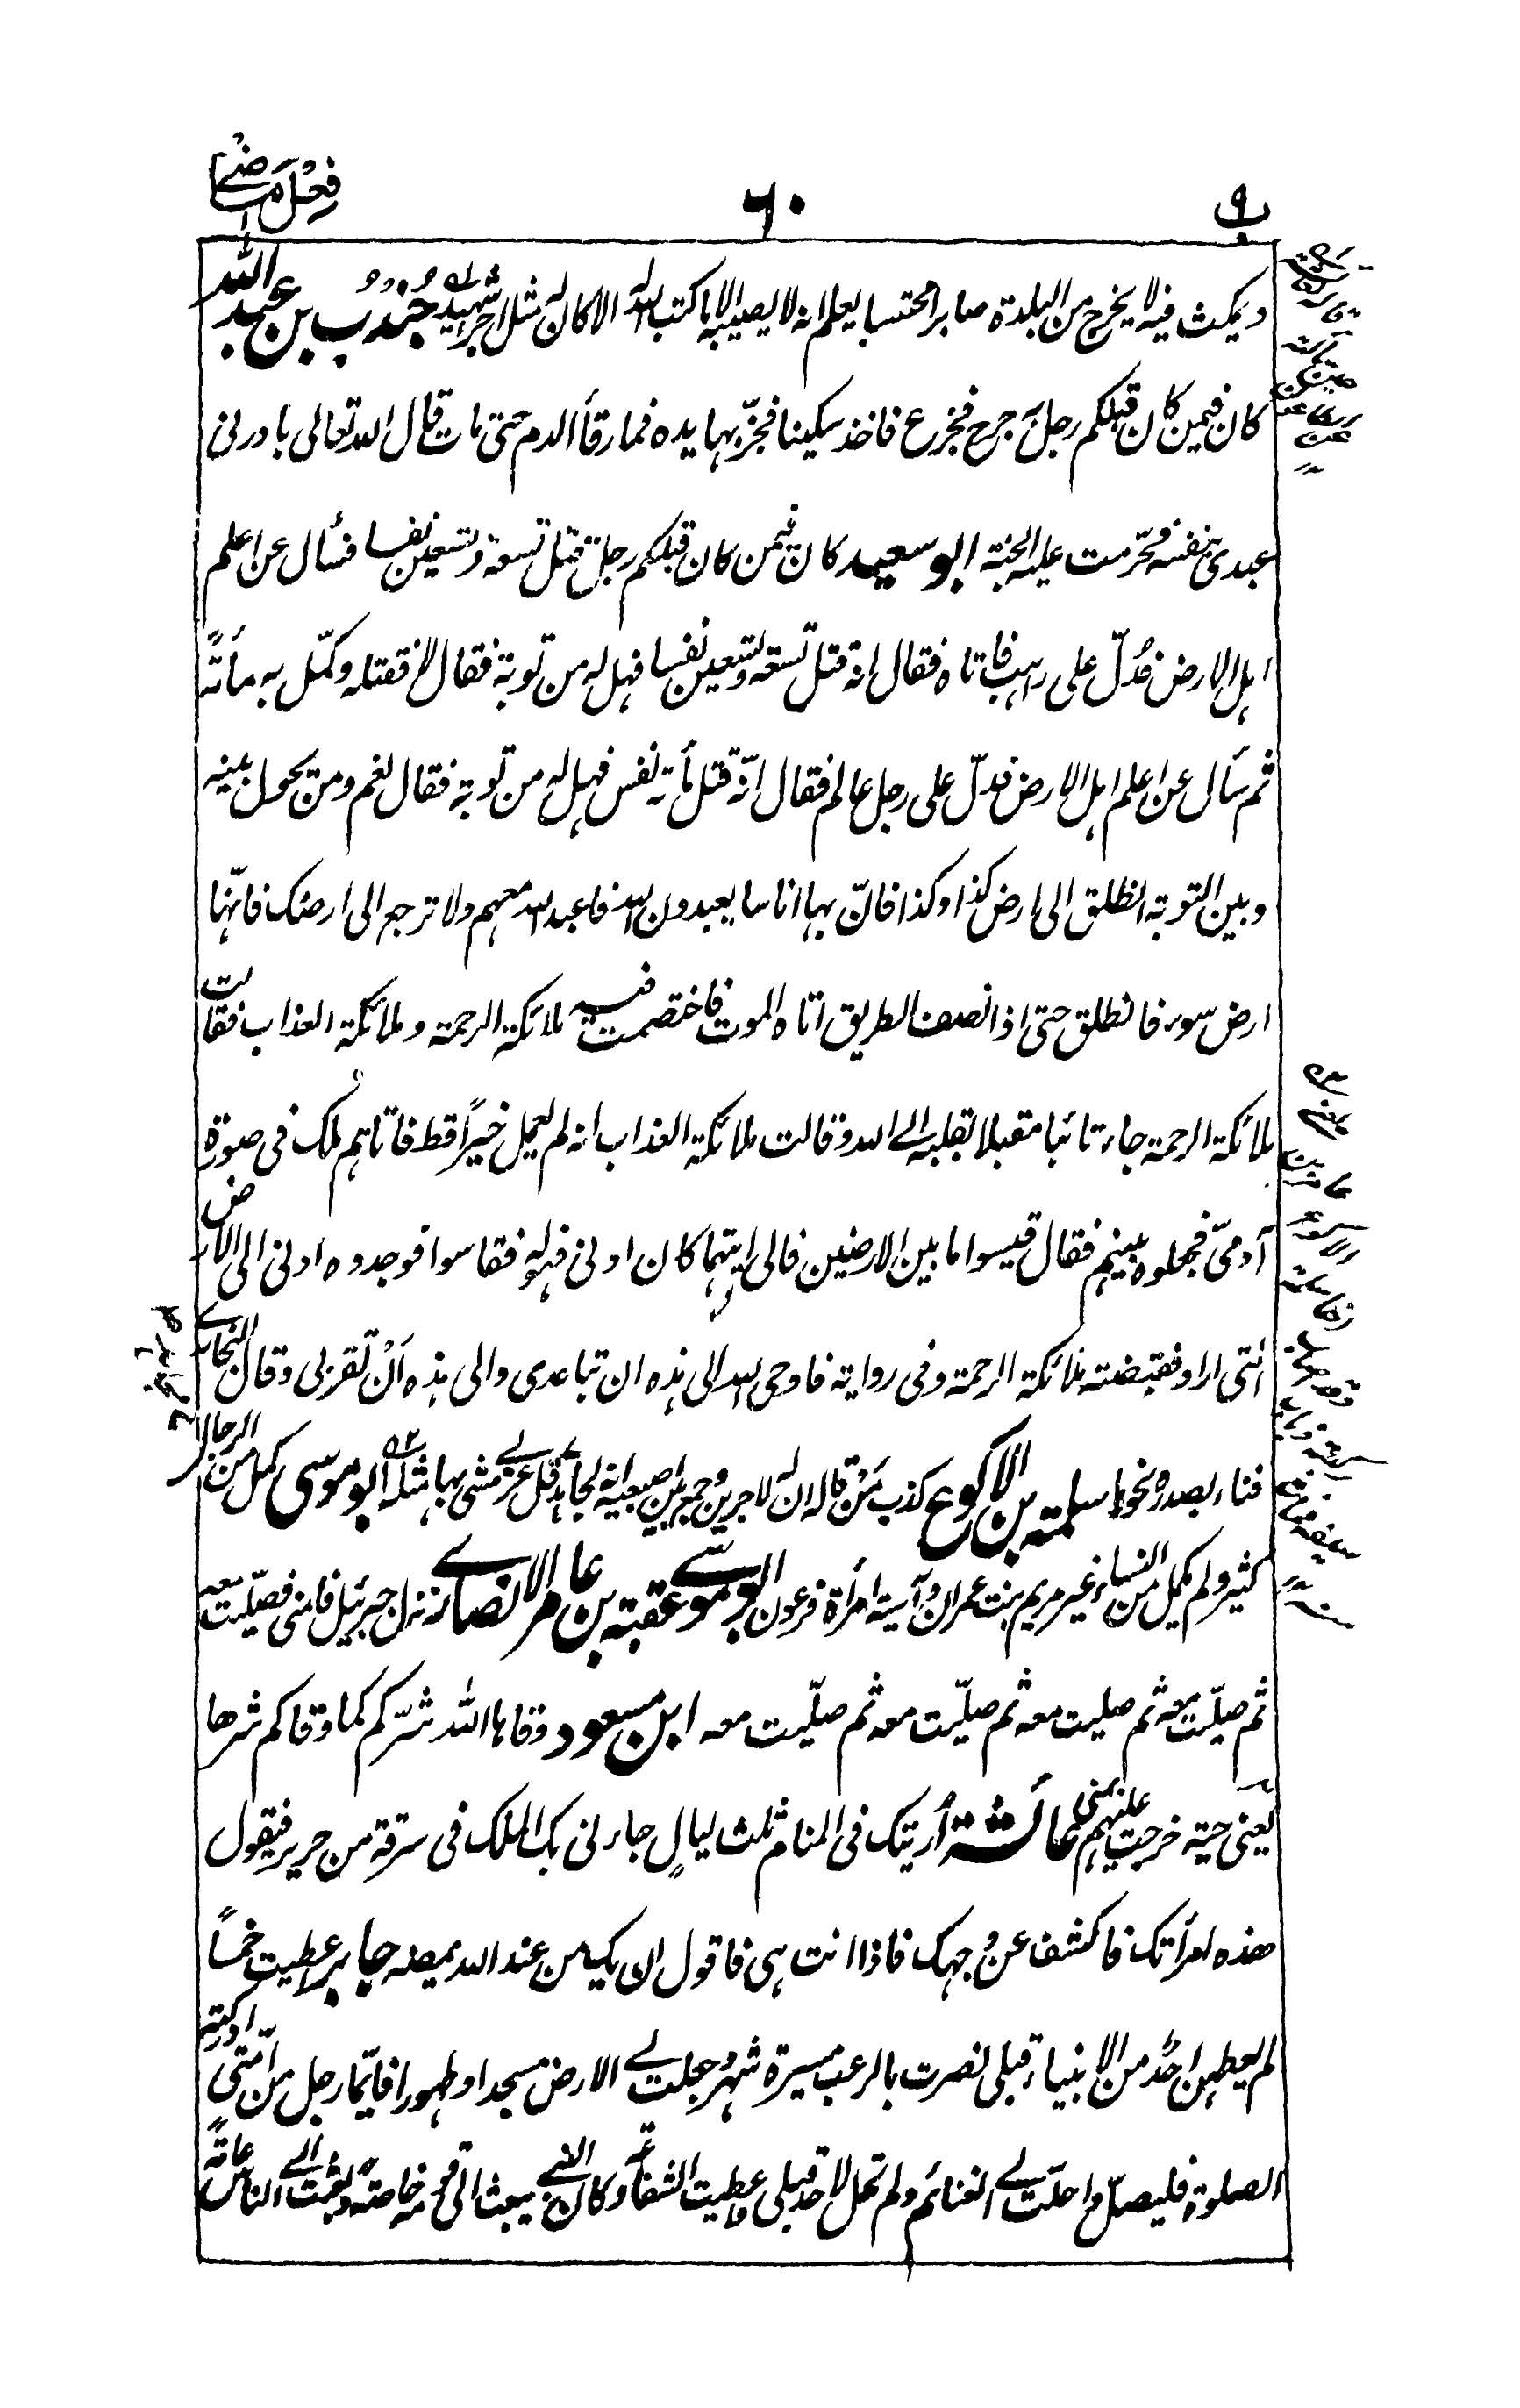 ب٩
٦٠
فعل ماضي
ويمكث فيه لا يخرج من البلدة صابرا محتسبا يعلم انه لا يصيبه الا ما كتب الله له الا كان له مثل اجر شهيد جُندُب بن عبد الله
كان فيمن كان قبلكم رجل به جرح فجزع فاخذ سكينا فجزّ بها يده فما رقأ الدم حتى مات قال الله تعالى بادرنى
عبدى بنفسه فحرّمت عليه الجنة ابو سعيد كان فيمن كان قبلكم رجل قتل تسعة وتسعين نفسا فسأل عن اعلم
اهل الارض فدُلّ على راهب فاتاه فقال انه قتل تسعة وتسعين نفسا فهل له من توبة فقال لا فقتله وكمّل به مأتةً
ثم سأل عن اعلم اهل الارض فدلّ على رجل عالم فقال انّه قتل مأتة نفس فهل له من توبة فقال نعم ومن يحول بينه
وبين التوبة انطلق الى ارض كذا وكذا فانّ بها اناسا يعبدون الله فاعبد الله معهم ولا ترجع الى ارضك فانّها
ارض سوء فانطلق حتى اذا نصف الطريق اتاه الموت فاختصمت فيه ملائكة الرحمة وملائكة العذاب فقالت
ملائكة الرحمة جاء تائبا مقبلا بقلبه الى الله وقالت ملائكة العذاب انه لم يعمل خيرًا قط فاتاهم ملك فى صورة
آدمىّ فجعلوه بينهم فقال قيسوا ما بين الارضين فالى ايتهما كان ادنى فهو له فقاسوا فوجدوه ادنى الى الارض
التى اراد فقبضته ملائكة الرحمة وفى رواية فاوحى الله الى هذه ان تباعدى والى هذه اَنْ تقربى وقال البخارى
فناء بصدره نحوها سلمة بن الاكوع كذب مَنْ قاله ان له لاجرين وجمع بين اصبعيه انه لجاهد مجاهد قل عربى مشى بها مثله ابو موسى كمل من الرجال
كثير ولم يكمل من النساء غير مريم بنت عمران وآسية امرأة فرعون ابو مسعود عقبة بن عامر الانصارى نزل جبرئيل فامنى فصلّيت معه
ثم صلّيت معه ثم صليت معه ثم صلّيت معه ثم صلّيت معه ابن مسعود وقاها الله شرّكم كما وقاكم شرها
يعنى حية خرجت عليهم بمنى عائشة أريتك فى المنام ثلث ليالٍ جاءنى بك الملك فى سرقة من حرير فيقول
هذه امرأتك فاكشف عن وجهك فاذا انت هى فاقول ان يك من عند الله يمضه جابر اعطيت خمسًا
لم يعطهن احدٌ من الانبياء قبلى نصرت بالرعب مسيرة شهر وجعلت لى الارض مسجدا وطهورا فايّما رجل من امّتى ادركته
الصلوة فليصلّ واحلّت لى الغنائم ولم تحل لاحد قبلى واعطيت الشفاعة وكان النبى يبعث الى قومه خاصةً وبعثت الى الناس عامّةً